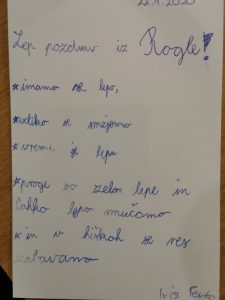 22.1.2020
Lep pozdrav iz Rogle!
*imamo se lepo,
*veliko se smejemo
*vreme je lepo
*proge so zelo lepe in
lahko lepo smučamo
*in v hiškah se res
zabavamo